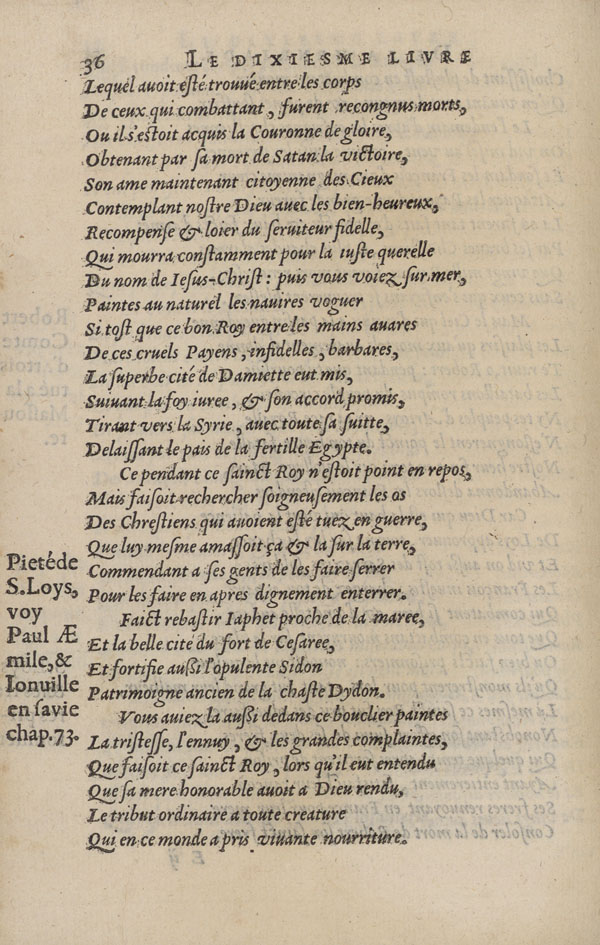 36 LE DIXIESME LIVRE
Lequel auoit esté trouué entre les corps
De ceux qui combattant, furent recongnus morts,
Ou il s'estoit acquis la Couronne de gloire,
Obtenant par sa mort de Satan la victoire,
Son ame maintenant citoyenne des Cieux
Contemplant nostre Dieu auec les bien-heureux,
Recompense & loier du seruiteur fidelle,
Qui mourra constamment pour la iuste querelle
Du nom de Iesus-Christ : puis vous voiez sur mer,
Paintes au naturel les nauires voguer
Si tost que ce bon Roy entre les mains auares
De ces cruels Payens, infidelles, barbares,
La superbe cité de Damiette eut mis,
Suiuant la foy iuree, & son accord promis,
Tirant vers la Syrie, auec toute sa suitte,
Delaissant le païs de la fertille Egypte.
Ce pendant ce sainct Roy n'estoit point en repos,
Mais faisoit rechercher soigneusement les os
Des Chrestiens qui auoient esté tuez en guerre,
Que luy mesme amassoit ça & la sur la terre,
Commendant a ses gents de les faire serrer
Pour les faire en apres dignement enterrer.
Faict rebastir Iaphet proche de la maree,
Et la belle cité du fort de Cesaree,
Et fortifie aussi l'opulente Sidon
Patrimoigne ancien de la chaste Dydon.
Vous auiez la aussi dedans ce bouclier paintes
La tristesse, l'ennuy, & les grandes complaintes,
Que faisoit ce sainct Roy, lors qu'il eut entendu
Que sa mere honorable auoit a Dieu rendu,
Le tribut ordinaire a toute creature
Qui en ce monde a pris viuante nourriture.
Pieté de
S. Loys,
voy
Paul Æ
mile, &
Ionuille
en sa vie
chap. 73.